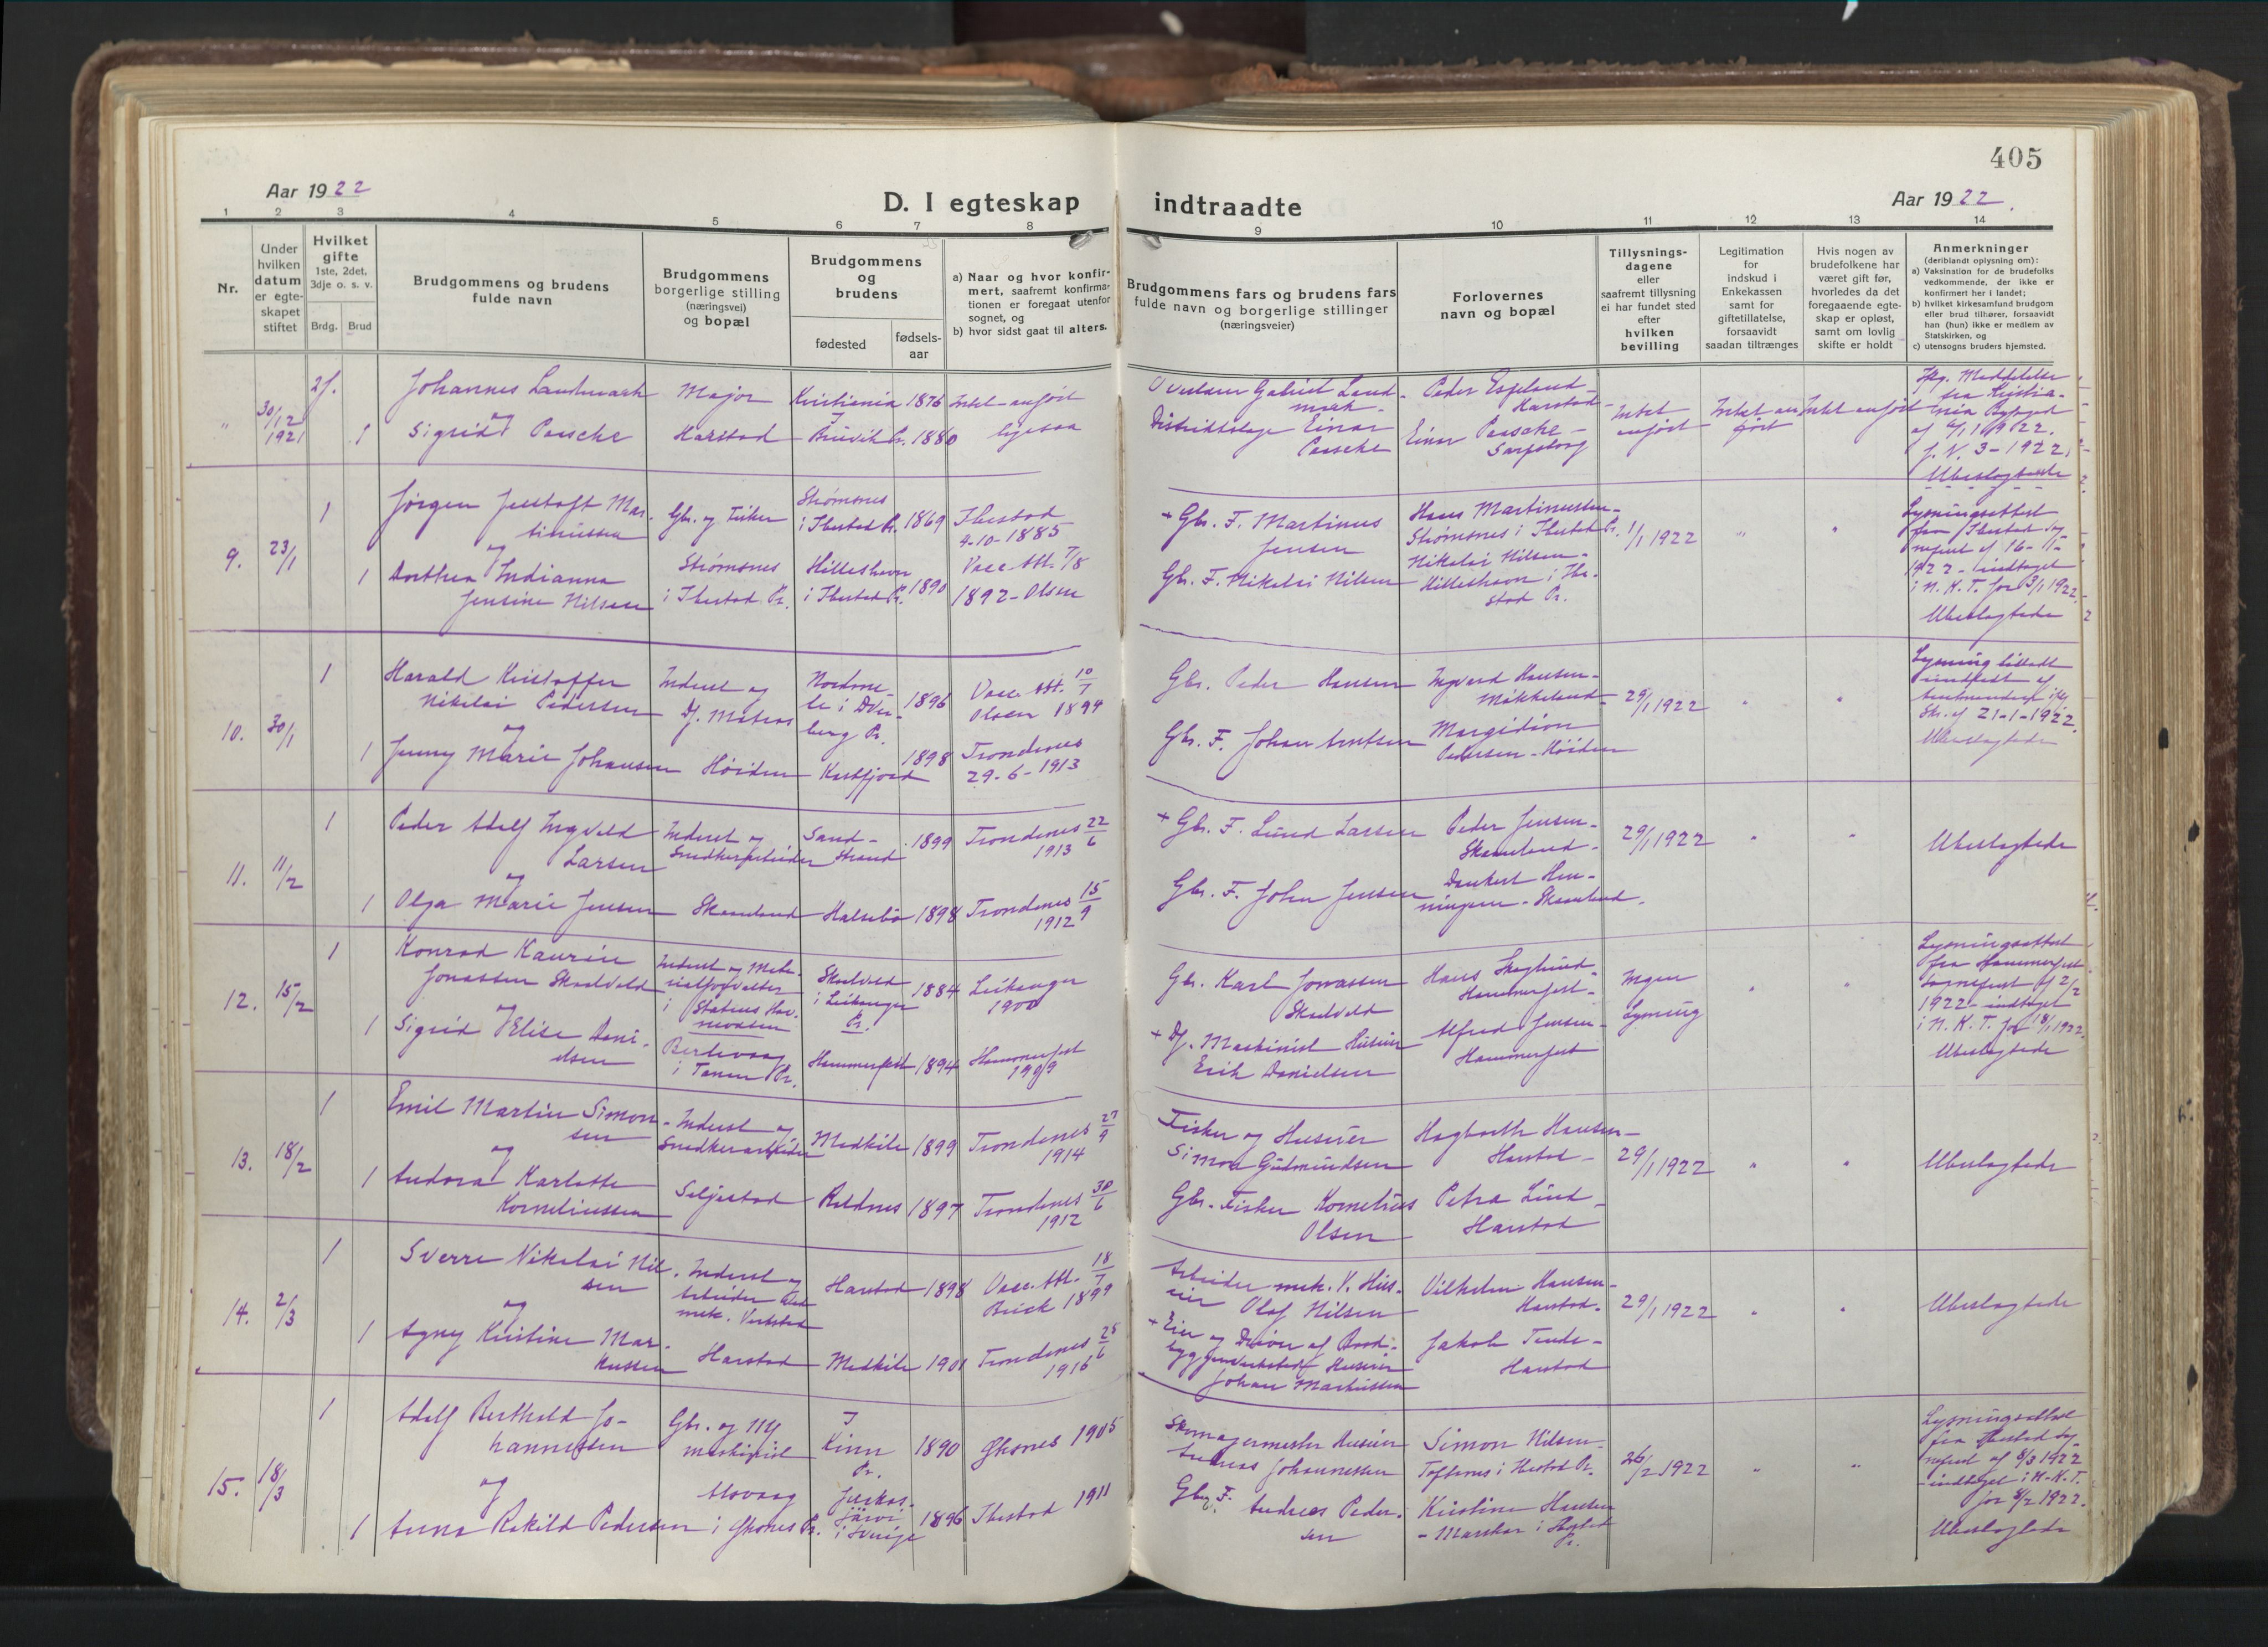 405
Aar 1922
D. I egteskap indtraadte
Aar 1922.
1 2 3 4 5 6 7 8 9 10 11 12 13 14
Nr.
Under hvilken datum er egteskapet stiftet
Hvilket gifte
1ste, 2det, 3dje o. s. v.
Brdg. Brud
Brudgommens og brudens fulde navn
Brudgommens borgerlige stilling (næringsvei) og bopæl
Brudgommens og brudens
fødested
fødsels-aar
a) Naar og hvor konfir-
mert, saafremt konfirma-
tionen er foregaat utenfor
sognet, og
b) hvor sidst gaat til alters.
Brudgommens fars og brudens fars
fulde navn og borgerlige stillinger
(næringsveier)
Forlovernes
navn og bopæl
Tillysnings-
dagene
eller
saafremt tillysning
ei har fundet sted
efter
hvilken
bevilling
Legitimation
for
indskud i
Enkekassen
samt for
giftetillatelse,
forsaavidt
saadan tiltrænges
Hvis nogen av
brudefolkene har
været gift før,
hvorledes da det
foregaaende egte-
skap er opløst,
samt om lovlig
skifte er holdt
Anmerkninger
(deriblandt oplysning om):
a) Vaksination for de brudefolks
vedkommende, der ikke er
konfirmert her i landet;
b) hvilket kirkesamfund brudgom
eller brud tilhører, forsaavidt
han (hun) ikke er medlem av
Statskirken, og
c) utensogns bruders hjemsted.
" 30/12 1921
2g.
1
Johannes Landmark
og
Sigrid Paasche
Major
Harstad
Kristiania 1876
Bruvik Pr. 1880
Intet anført
ligesaa
Overlærer Gabriel Land-
mark
Distriktslæge Einar
Paasche
Peder Espeland-
Harstad-
Einar Paasche-
Sarpsborg
Intet
anført
Intet an
ført
Intet anført
Meddelelse
fra Kristia-
nia
1922.
J. N. 3-1922.
Ubeslegtede
9. 23/1
1
1
Jørgen Jentoft Mar-
tinussen
og
Dorthea Indianna
Jensine Nilsen
Gbr. og Fisker
Strømsnes
i Ibestad Pr.
Strømsnes
i Ibestad Pr. 1869
Hilleshavn
i Ibestad Pr. 1890
Ibestad
4-10-1885
Vacc. Att. 7/8
1892-Olsen
+ Gbr. F. Martinus
Jensen
Gbr. F. Nikolai Nilsen
Hans Martinussen-
Strømsnes i Ibestad Pr.
Nikolai Nilsen-
Hilleshavn i Ibe-
stad Pr.
1/1 1922
"
"
Lysningsattest
fra Ibestad Sog-
neprest af 16-1-
1922-indtaget
i N. K. T. for 3/1 1922.
Ubeslegtede
10. 30/1
1
1
Harald Kristoffer
Nikolai Pedersen
og
Jenny Marie Johansen
Inderst og
Df. Matros
Høiden
Nordme-
le i Dver-
berg Pr. 1896
Kastfjord 1898
Vacc. Att. 10/7
Olsen 1894
Trondenes
29-6-1913
Gbr. Peder Hansen
Gbr. F. Johan Arntsen
Ingvard Hansen-
Mikkelund-
Margidion
Pedersen-Høiden
29/1 1922
"
"
Lysning
21-1-1922.
Ubeslegtede
11. 11/2
1
1
Peder Adolf Ingvald
Larsen
og
Olga Marie Jensen
Inderst og
Snedkerarbeider
Skaneland
Sand-
Strand 1899
Halsebø 1898
Trondenes 22/6
1913
Trondenes 15/9
1912
+ Gbr. F. Lund Larsen
Gbr. F. Johan Jensen
Peder Jensen-
Skaneland-
Dankert Hen-
ningsen-Skaneland.
29/1 1922
"
"
Ubeslegtede
12. 15/2
1
1
Konrad Kaurin
Jonassen Skaalvold
og
Sigrid Elise Dani-
elsen
Inderst og Mate-
rialforvalter
i Statens Hav-
nevæsen
Berlevaag
i Tanen Pr.
i Leikanger
Pr. 1884
Hammerfest 1894
Leikanger
1900
Hammerfest
1909
Gbr. Karl Jonassen
+ Df. Maskinist Huseier
Erik Danielsen
Hans Skoglund-
Hammerfest-
Alfred Jensen-
Hammerfest
Ingen
Lysning
"
"
Lysningsattest
fra Hammerfest
Sogneprest af 2/2
1922-indtaget
i N. K. T. for 18/1 1922.
Ubeslegtede
13. 18/2
1
1
Emil Martin Simon-
sen
og
Andora Karlotte
Korneliussen
Inderst og
Snedkerarbeider
Seljestad
Medkile 1899
Roldnes 1897
Trondenes 27/9
1914
Trondenes 30/6
1912
Fisker og Huseier
Simon Gudmundsen
Gbr. Fisker Kornelius
Olsen
Hagbarth Hansen-
Harstad-
Petra Lind-
Harstad
29/1 1922
"
"
Ubeslegtede
14. 2/3
1
1
Sverre Nikolai Nil-
sen
og
Agny Kristine Mar-
kussen
Inderst og
Arbeider ved
mek. Verksted
Harstad
Harstad 1898
Medkile 1901
Vacc. Att. 18/7
Brick 1899
Trondenes 25/6
1916
Arbeider mek. V. Hus-
eier Olaf Nilsen
+ Eier og Driver af Baad-
byggerverksted Huseier
Johan Markussen
Vilhelm Hansen-
Harstad.
Jakob Tande-
Harstad
29/1 1922
"
"
Ubeslegtede
15. 18/3
1
1
Adolf Berthold Jo-
hannessen
og
Anna Rakild Pedersen
Gbr. og
maskinist
Alsvaag
i Øksnes Pr.
I
Kinn
Pr. 1890
Jukkas-
järvi
i Sverige 1896
Øksnes 1905
Ibestad 1911
Skomagermester Huseier
Andreas Johannessen
Gbr. F. Andreas Peder-
sen
Simon Nilsen-
Toftenes i Ibestad Pr.
Kristine Hansen
- i Ibestad
Pr.
26/2 1922
"
"
Lysningsattest
fra Ibestad Sog-
neprest af 8/3 1922
-indtaget i N. K. T.
for 8/2 1922.
Ubeslegtede